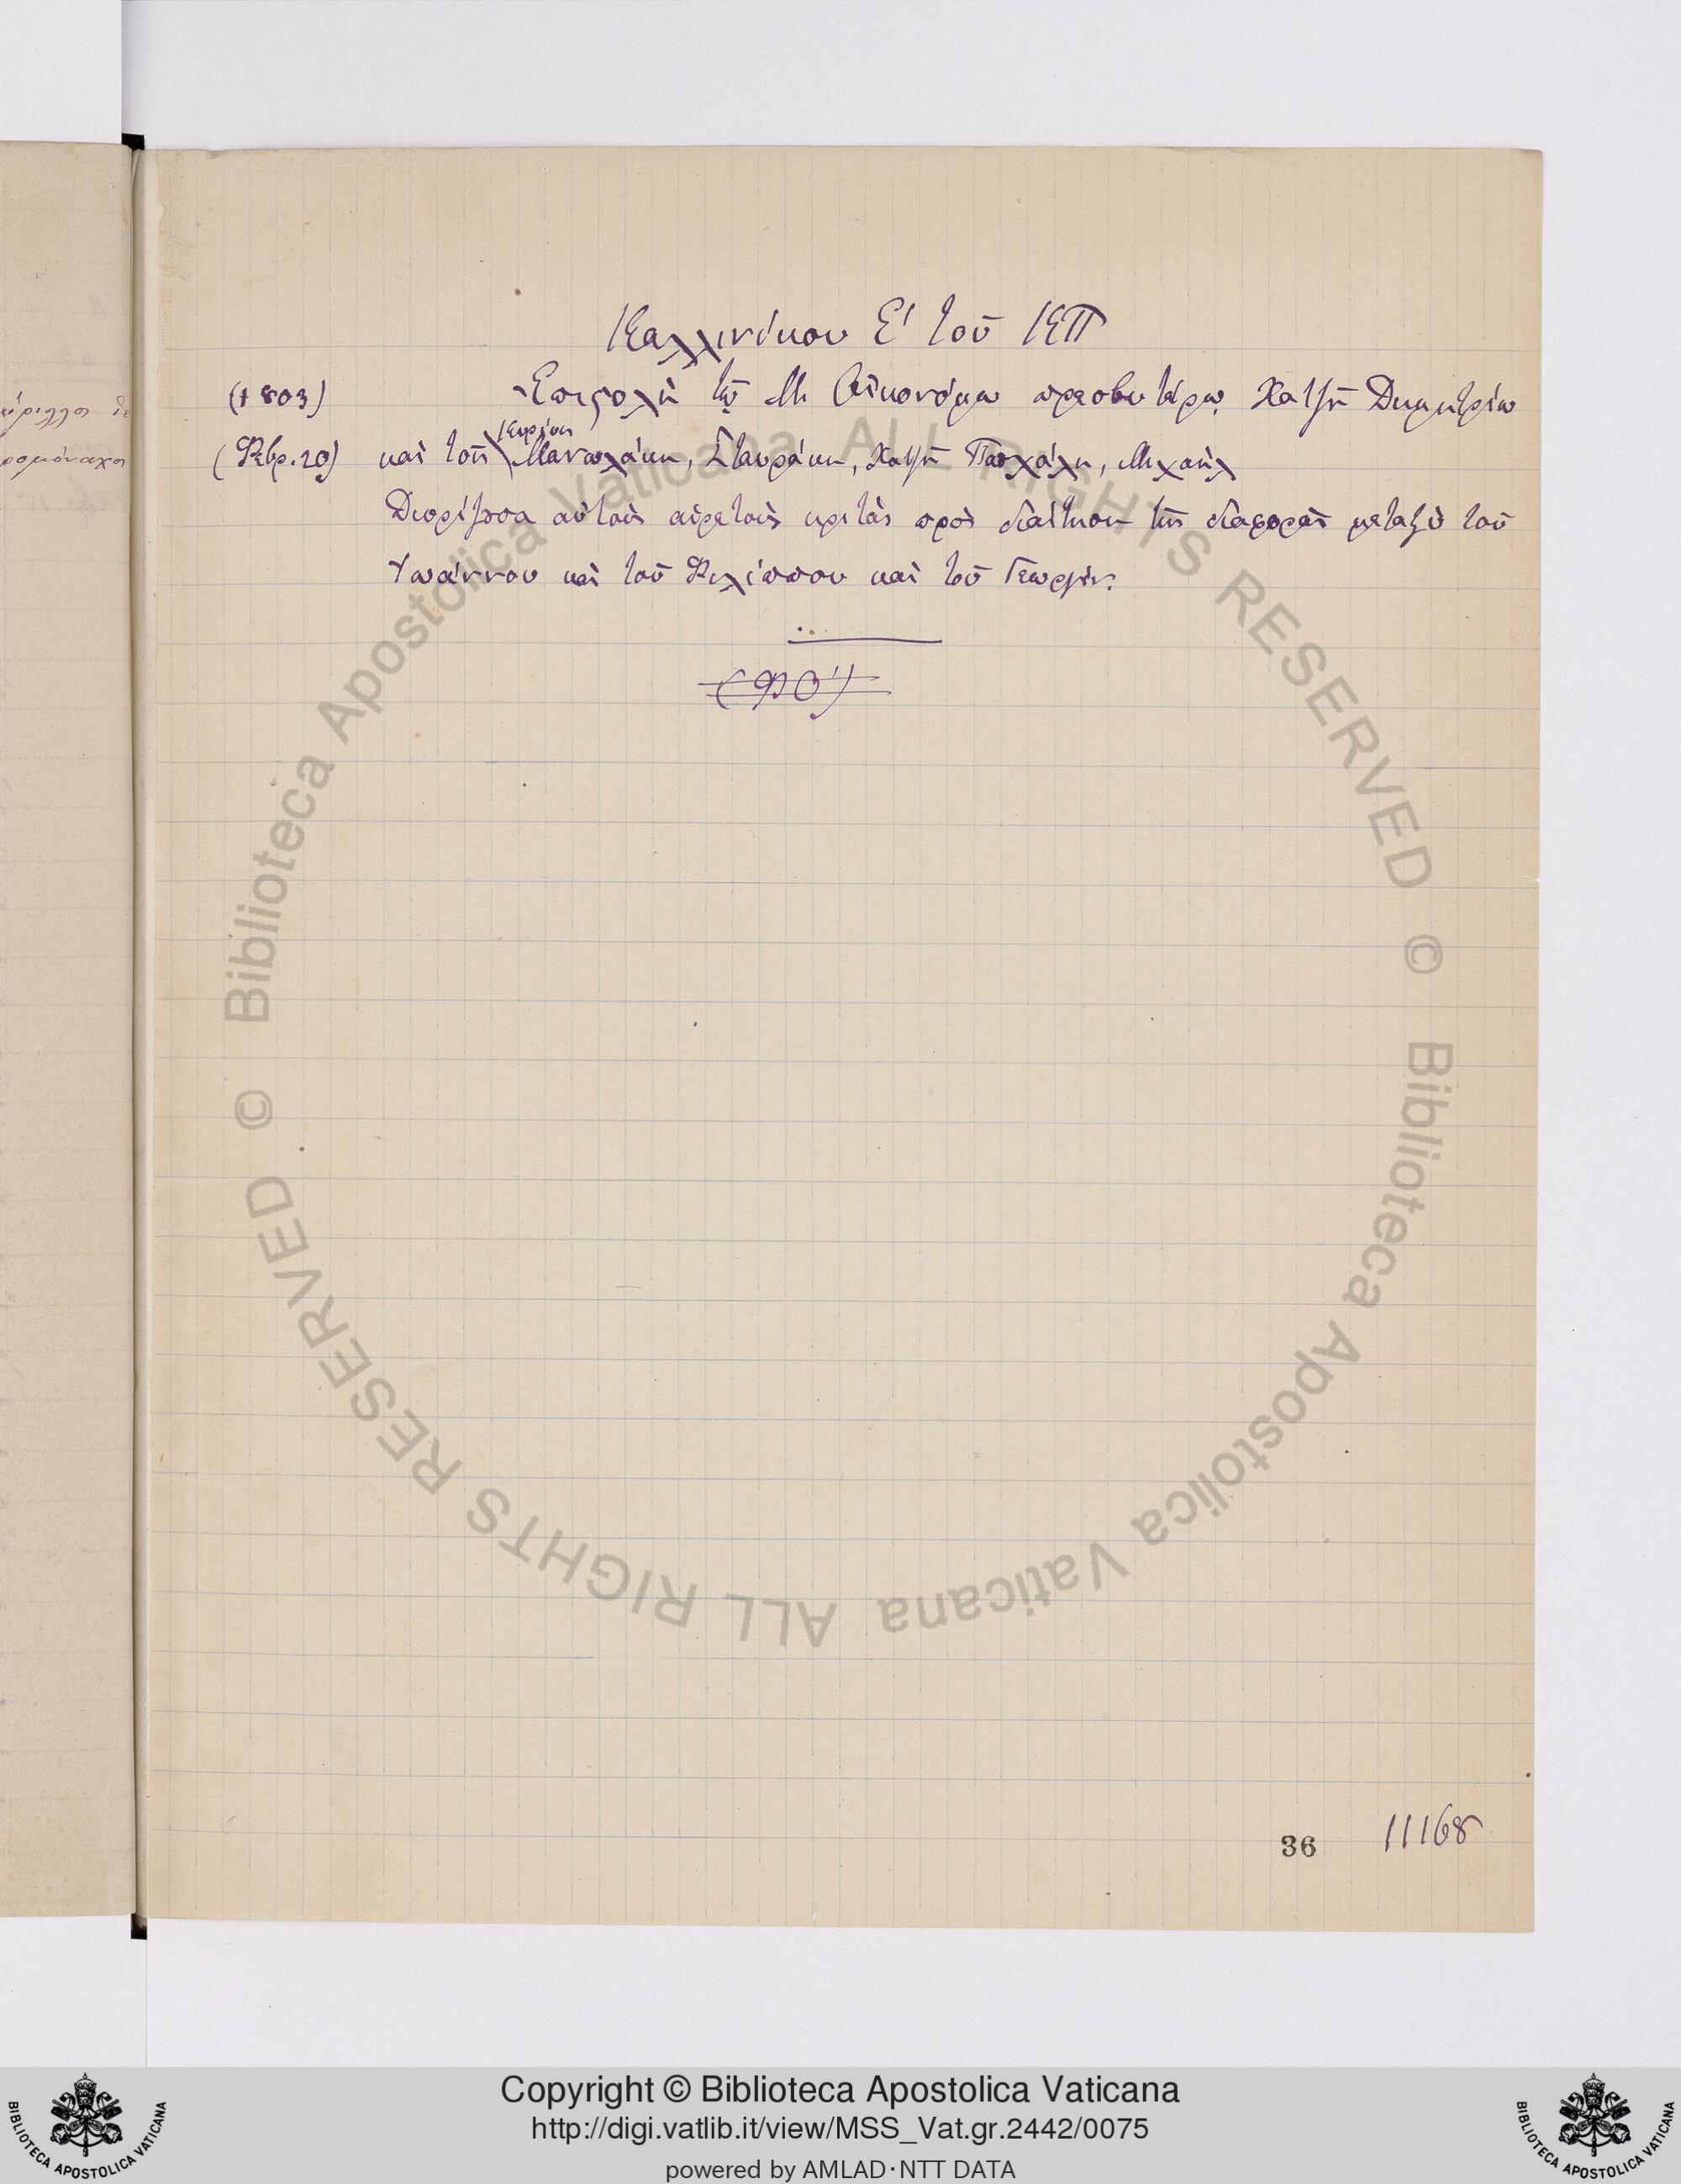 Καλλινίκου Ε' τοῦ ΚΠ
(1803) Ἐπιστολὴ τῷ Μ. Οἰκονόμῳ πρεσβυτέρῳ Χατζῆ Δημητρίῳ
(Φεβρ. 20) καὶ τοῖς Κυρίοις Μανωλάκη, Σταυράκη, Χατζῆ Πασχάλη, Μιχαὴλ
Διορίζουσα αὐτοὺς αἱρετοὺς κριτὰς πρὸς διαίτησιν τῆς διαφορᾶς μεταξὺ τοῦ
Ἰωάννου καὶ τοῦ Φιλίππου καὶ τοῦ Γεωργίου.
36 11168
© Biblioteca Apostolica Vaticana ALL RIGHTS RESERVED © Biblioteca Apostolica Vaticana ALL RIGHTS RESERVED
Copyright © Biblioteca Apostolica Vaticana
http://digi.vatlib.it/view/MSS_Vat.gr.2442/0075
powered by AMLAD·NTT DATA
BIBLIOTECA APOSTOLICA VATICANA
BIBLIOTECA APOSTOLICA VATICANA